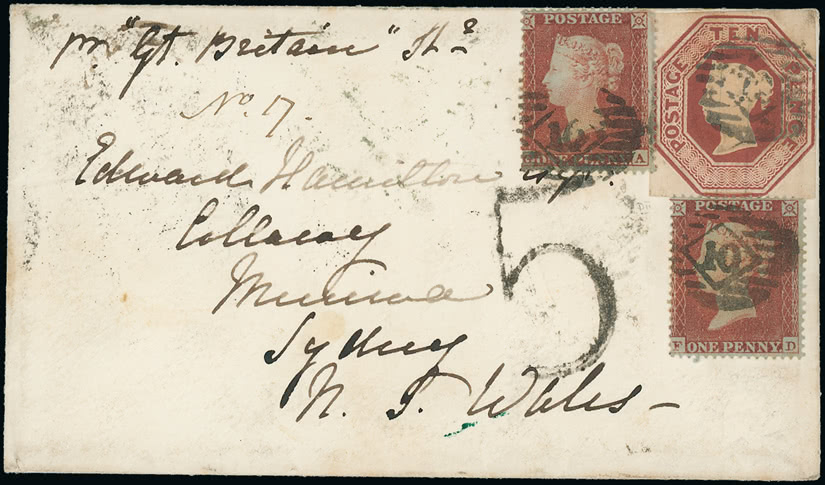 pr "Gt. Britain" St r
No. 17.
Edward Hamilton Esqr.
Collaroy
Sydney
N. S. Wales
5
POSTAGE
16
A
POSTAGE TEN PENCE
POSTAGE
16
F ONE PENNY D